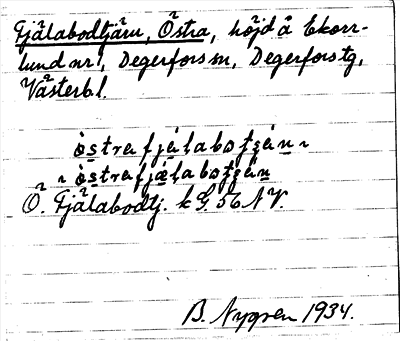 Fjälabodtjärn, Östra, höjd å Ekorr-
lund nr 1, Degerfors sn, Degerfors tg,
Västerb l.
òstrafjälabotʃä́n
òstrafjälabotʃä̀n
Ö. Fjälabodtj. k G. 56 NV.
B. Nygren 1934.